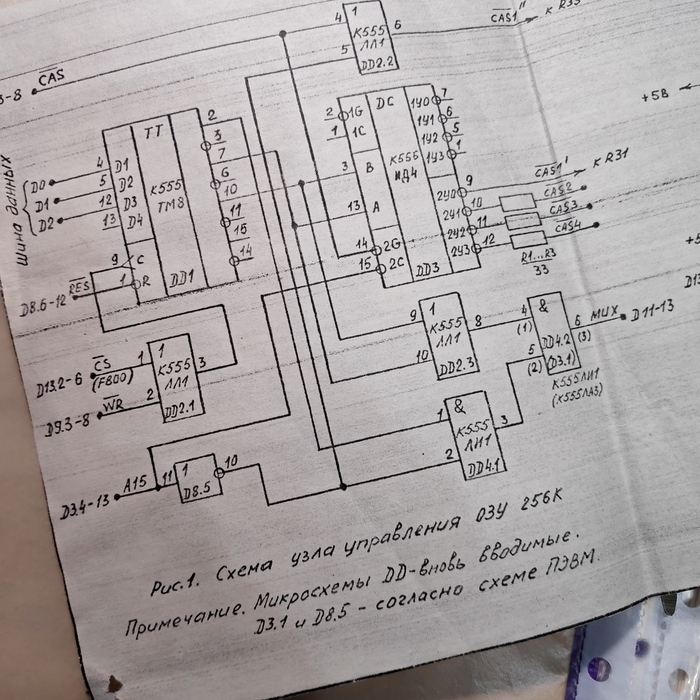 4 1 К555 ЛЛ1 DD2.2 6 CAS1" К R35
5
3-8 CAS
+5В
Шина данных
D0 4 D1 ТТ 2
D1 5 D2 К555 ТМ8 3
D2 12 D3 7
13 D4 6
10
11
15
9 C 14
1 R DD1
D8.6-12 RES
2 1G DC 1У0 7
1 1C К555 ИД4 1У1 6
3 B 1У2 5
1У3 1
13 A 2У0 9 CAS1' К R31
14 2G 2У1 10 CAS2
15 2C 2У2 11 CAS3
DD3 2У3 12 CAS4
R1...R3
33
D13.2-6 CS 1 1 К555 ЛЛ1 3
(F800)
D9.3-8 WR 2 DD2.1
9 1 К555 ЛЛ1 8
10 DD2.3
4 (1) & 6 MUX D11-13
5 (2) DD4.2 (3)
(D3.1)
К555ЛИ1
(К555ЛА3)
1 & К555 ЛИ1 3
2 DD4.1
D3.4-13 A15 11 1 10
D8.5
Рис.1. Схема узла управления ОЗУ 256К
Примечание. Микросхемы DD-вновь вводимые.
D3.1 и D8.5 - согласно схеме ПЭВМ.